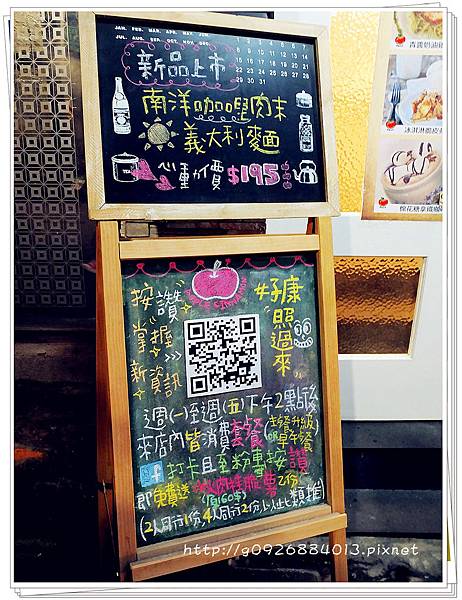 JAN. FEB. MAR. APR. MAY. JUN.
JUL. AUG. SEP. OCT. NOV. DEC.
新品上市
南洋咖哩肉末
義大利麵
心動價$195
按讚
掌握>>>
新資訊
#好康
照過來
週(一)至週(五)下午2點後
來店內皆消費套餐
打卡且至粉專按讚
即免費送
(2人同行1份,4人同行2份,以此類推)
青醬奶油
冰淇淋脆皮
棉花糖拿鐵咖
http://g0926884013.pixnet